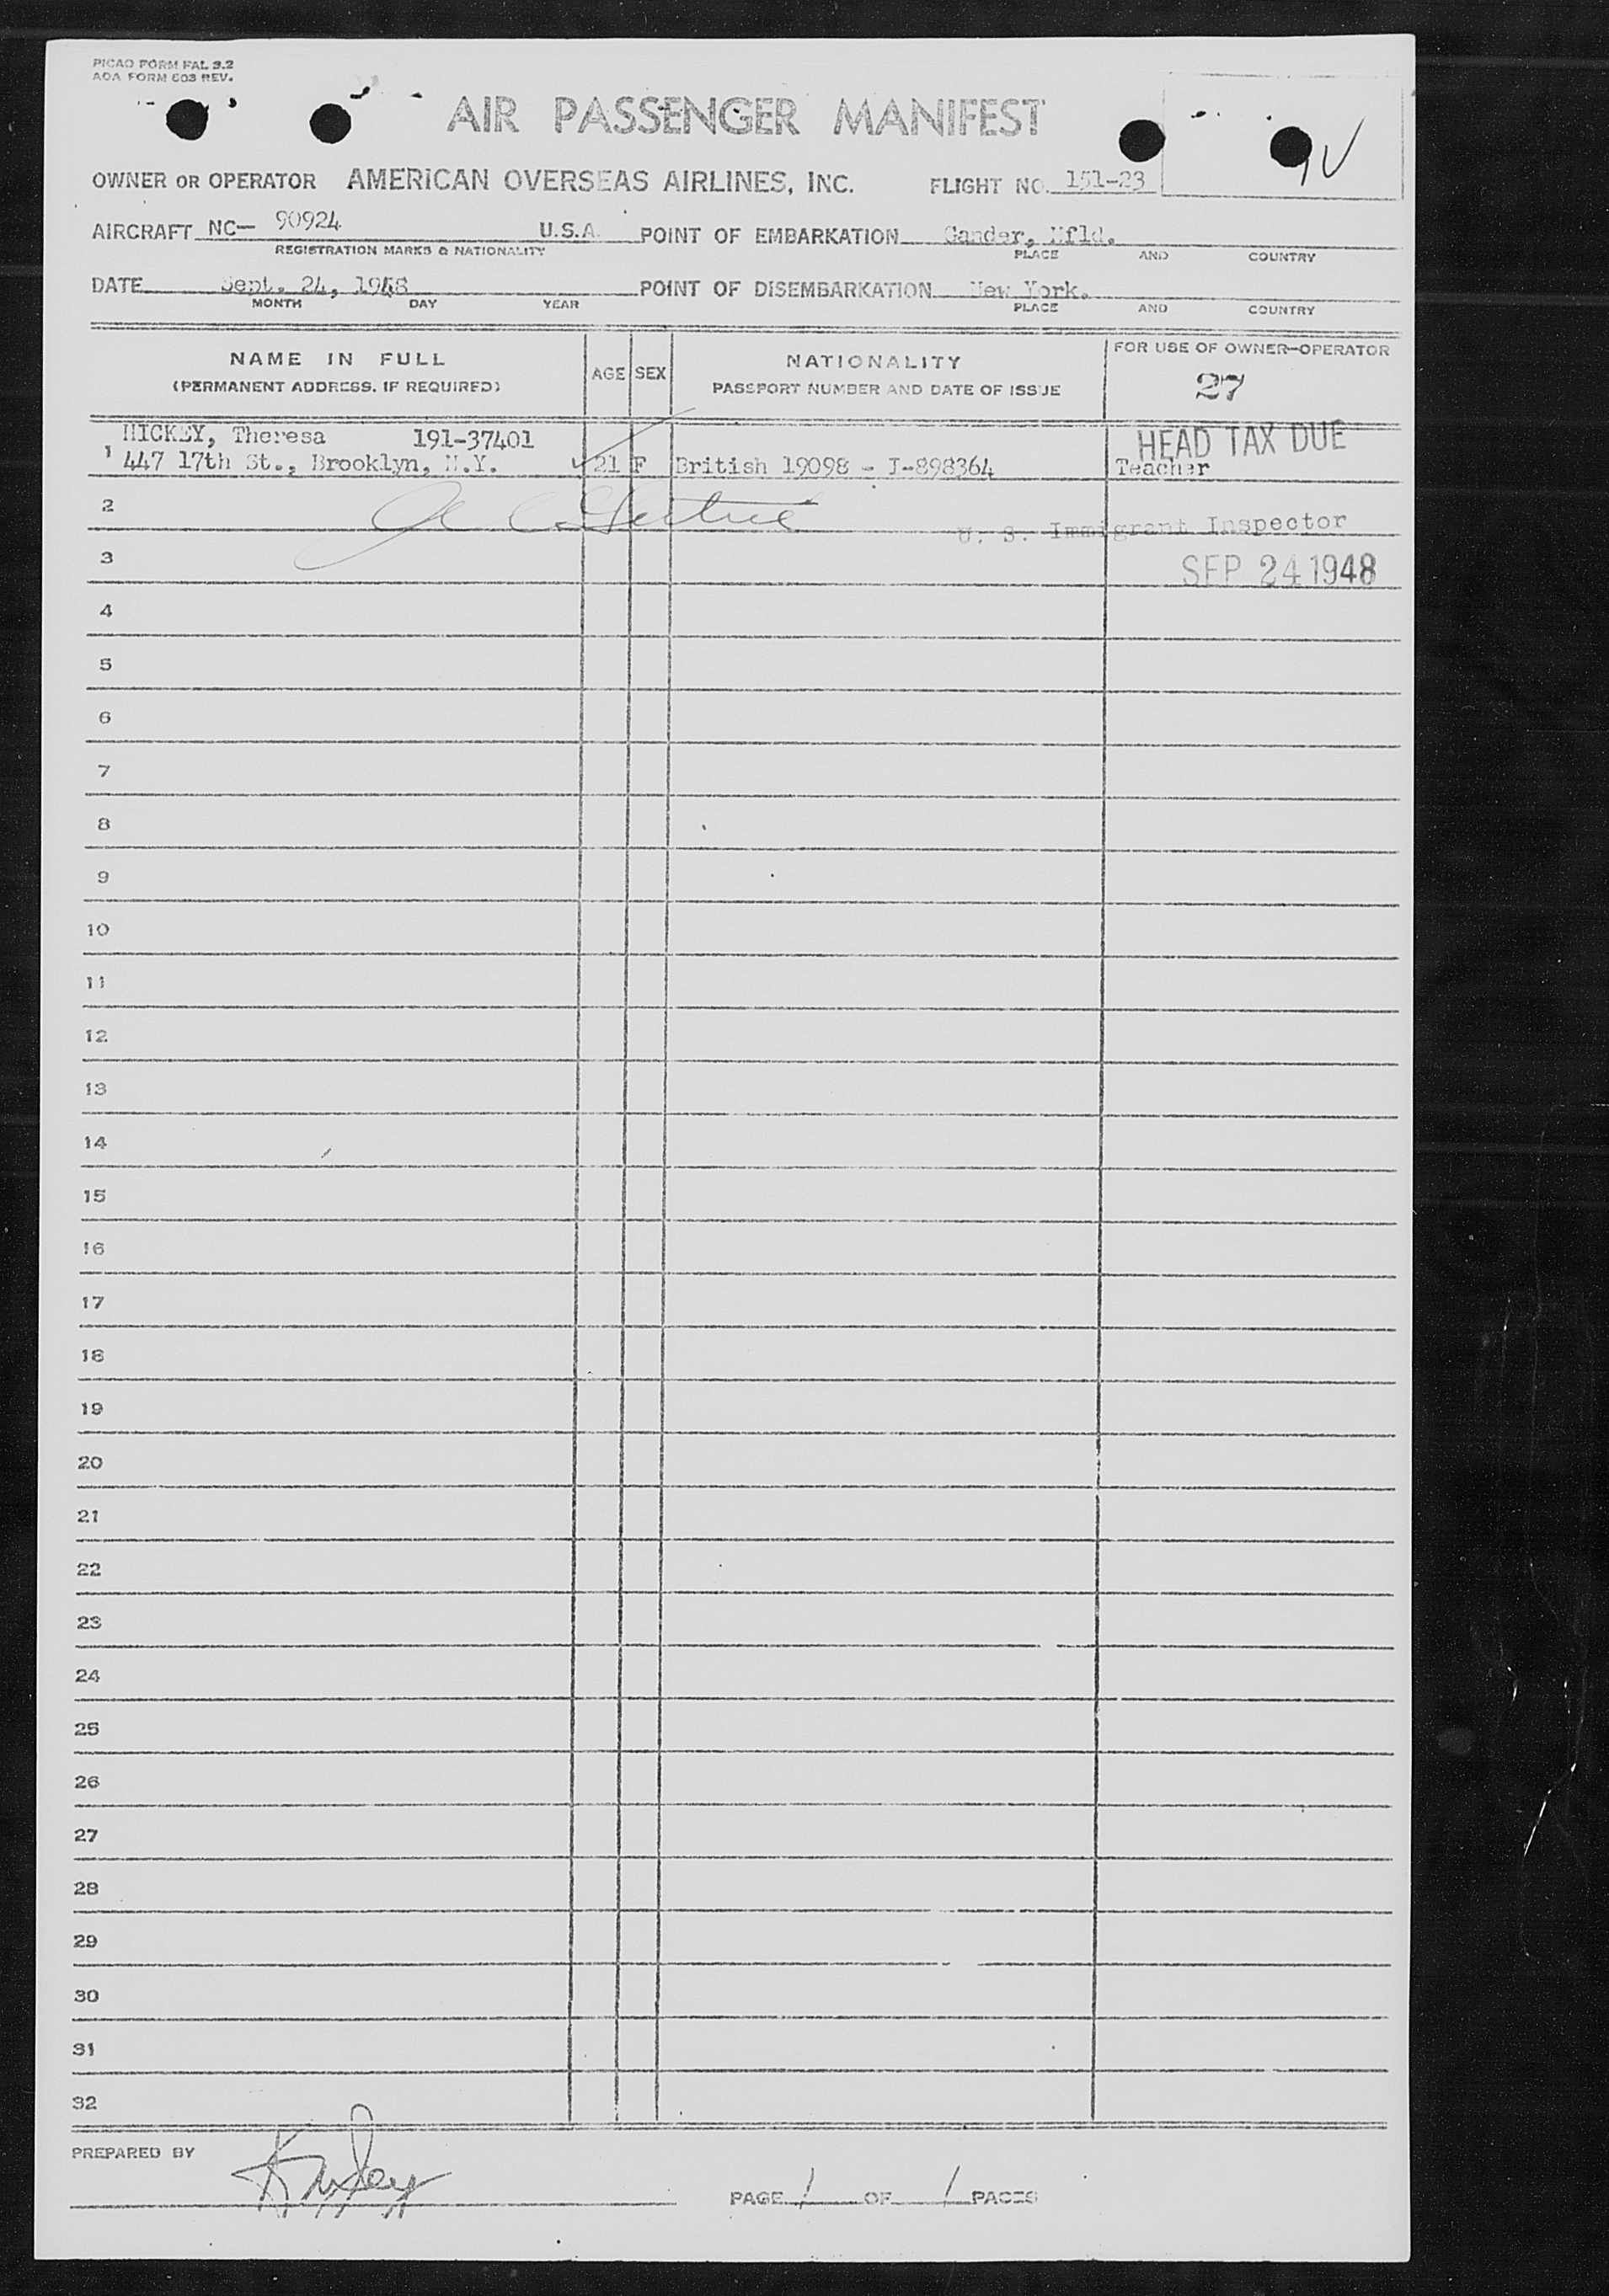 PICAO FORM FAL 3.2
AOA FORM 603 REV.
AIR PASSENGER MANIFEST
OWNER OR OPERATOR AMERICAN OVERSEAS AIRLINES, INC. FLIGHT NO. 151-23
AIRCRAFT NC— 90924 U.S.A. POINT OF EMBARKATION Gander, Nfld.
REGISTRATION MARKS & NATIONALITY PLACE AND COUNTRY
DATE Sept. 24, 1948 POINT OF DISEMBARKATION New York.
MONTH DAY YEAR PLACE AND COUNTRY
NAME IN FULL
(PERMANENT ADDRESS, IF REQUIRED)
AGE
SEX
NATIONALITY
PASSPORT NUMBER AND DATE OF ISSUE
FOR USE OF OWNER—OPERATOR
27
HEAD TAX DUE
HICKEY, Theresa 191-37401
1 447 17th St., Brooklyn, N.Y. 21 F British 19098 - I-898364 Teacher
2
U. S. Immigrant Inspector
3
SEP 24 1948
4
5
6
7
8
9
10
11
12
13
14
15
16
17
18
19
20
21
22
23
24
25
26
27
28
29
30
31
32
PREPARED BY
PAGE 1 OF 1 PAGES